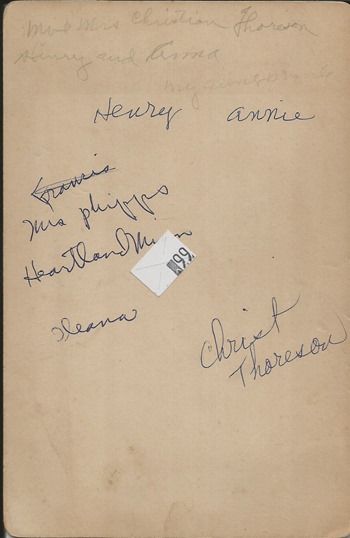 Mr & Mrs Christian Thoreson
Henry and Anna
Henry Annie
Francis
Mrs phipps
Heartland Minn
99
Ileana
Christ
Thoreson